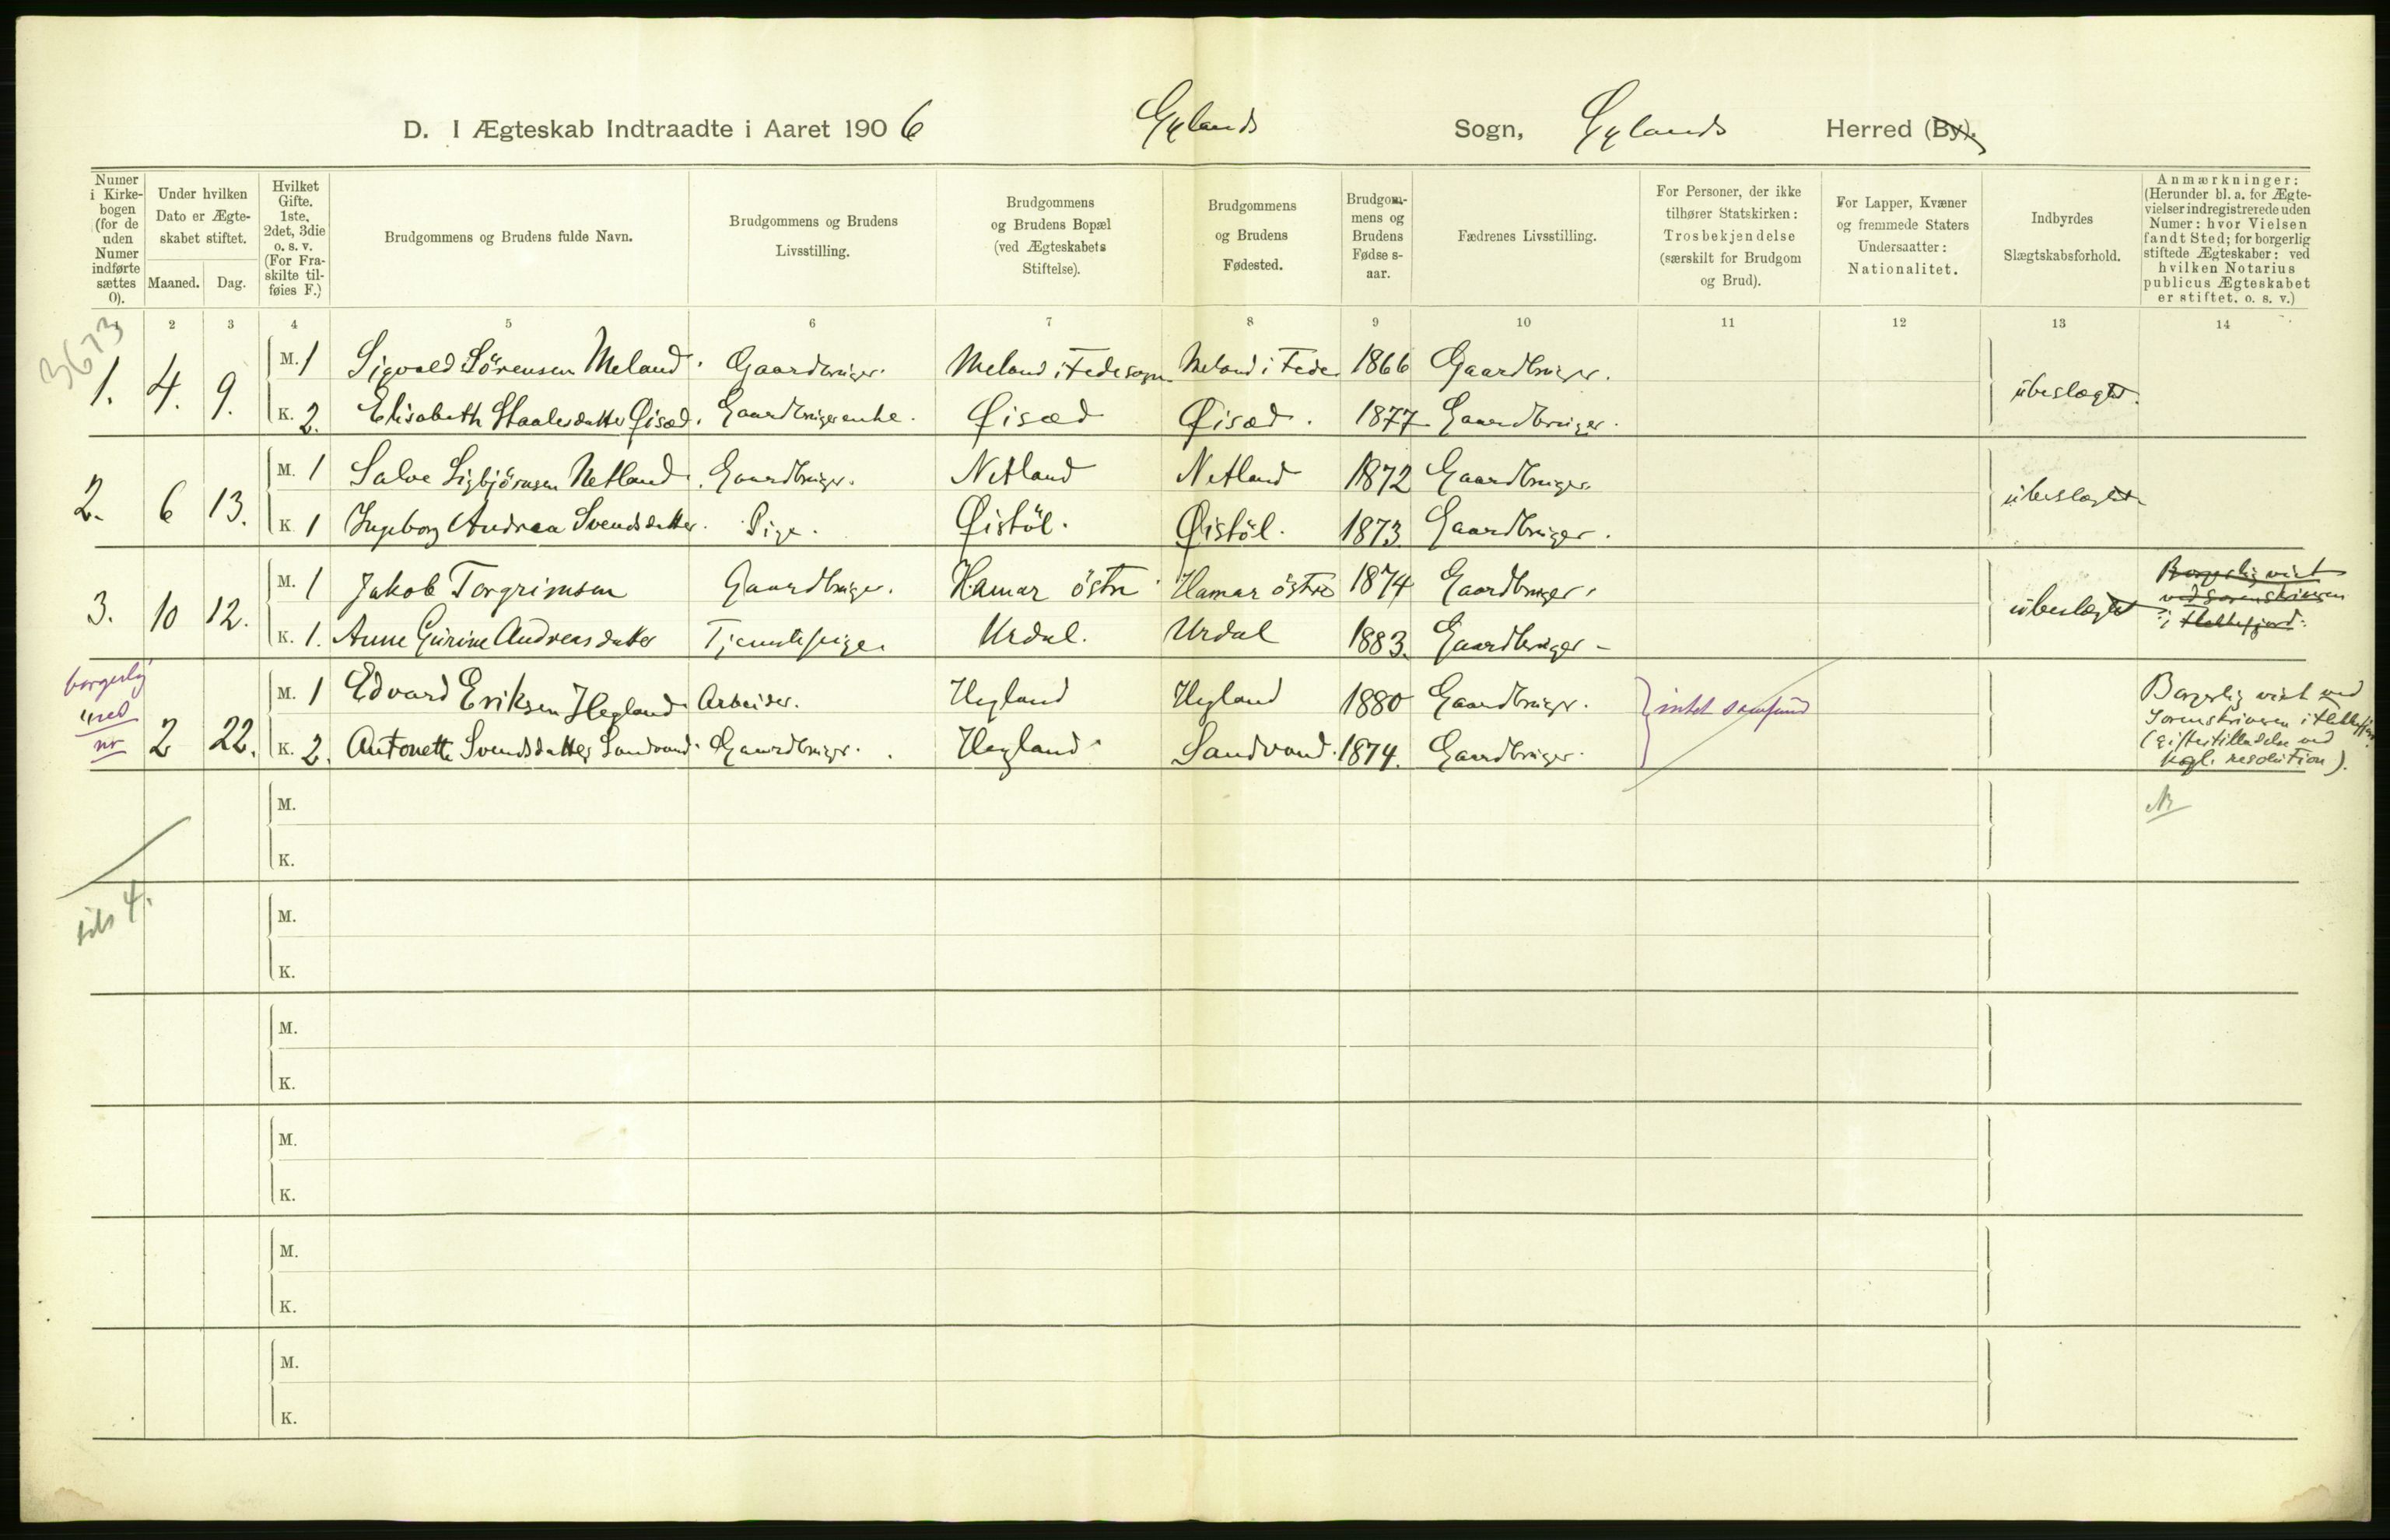 D. I Ægteskab Indtraadte i Aaret 1906 Gylands Sogn, Gylands Herred (By).
Numer i Kirkebogen (for de uden Numer indførte sættes 0).
Under hvilken Dato er Ægteskabet stiftet.
Maaned. Dag.
Hvilket Gifte. 1ste, 2det, 3die o. s. v. (For Fraskilte tilføies F.)
Brudgommens og Brudens fulde Navn.
Brudgommens og Brudens Livsstilling.
Brudgommens og Brudens Bopæl (ved Ægteskabets Stiftelse).
Brudgommens og Brudens Fødested.
Brudgommens og Brudens Fødselsaar.
Fædrenes Livsstilling.
For Personer, der ikke tilhører Statskirken: Trosbekjendelse (særskilt for Brudgom og Brud).
For Lapper, Kvæner og fremmede Staters Undersaatter: Nationalitet.
Indbyrdes Slægtskabsforhold.
Anmærkninger: (Herunder bl. a. for Ægtevielser indregistrerede uden Numer: hvor Vielsen fandt Sted; for borgerlig stiftede Ægteskaber: ved hvilken Notarius publicus Ægteskabet er stiftet. o. s. v.)
2 3 4 5 6 7 8 9 10 11 12 13 14
3673
1. 4. 9. M. 1 Sigvald Sörensen Meland. Gaardbruger. Meland i Fede sogn Meland i Fede 1866 Gaardbruger. übeslægtet.
K. 2. Elisabeth Staalesdatter Öisæd. Gaardbrugerenke. Øisæd Øisæd. 1877 Gaardbruger.
2. 6 13. M. 1 Salve Sigbjörnsen Netland. Gaardbruger. Netland Netland 1872 Gaardbruger. übeslægtet
K. 1 Ingeborg Andrea Svendsdatter. Pige. Øistöl. Øistöl. 1873. Gaardbruger.
3. 10 12. M. 1 Jakob Torgrimsen Gaardbruger. Hamar östre Hamar östre 1874 Gaardbruger. übeslægtet Borgerlig viet ved Sorenskriveren i Flekkefjord.
K. 1. Anne Gurine Andreasdatter Tjenestepige. Urdal. Urdal 1883. Gaardbruger
borgerlig
nr 2 22. M. 1 Edvard Eriksen Hegland Arbeider. Hegland Hegland 1880 Gaardbruger. intet samfund Borgerlig viet ved Sorenskriveren i Flekkefjord (Giftestilladelse ved kgl. resolution).
K. 2. Antonette Svendsdatter Sandvand. Gaardbruger. Hegland Sandvand. 1874. Gaardbruger.
M.
K.
4.
M.
K.
M.
K.
M.
K.
M.
K.
M.
K.